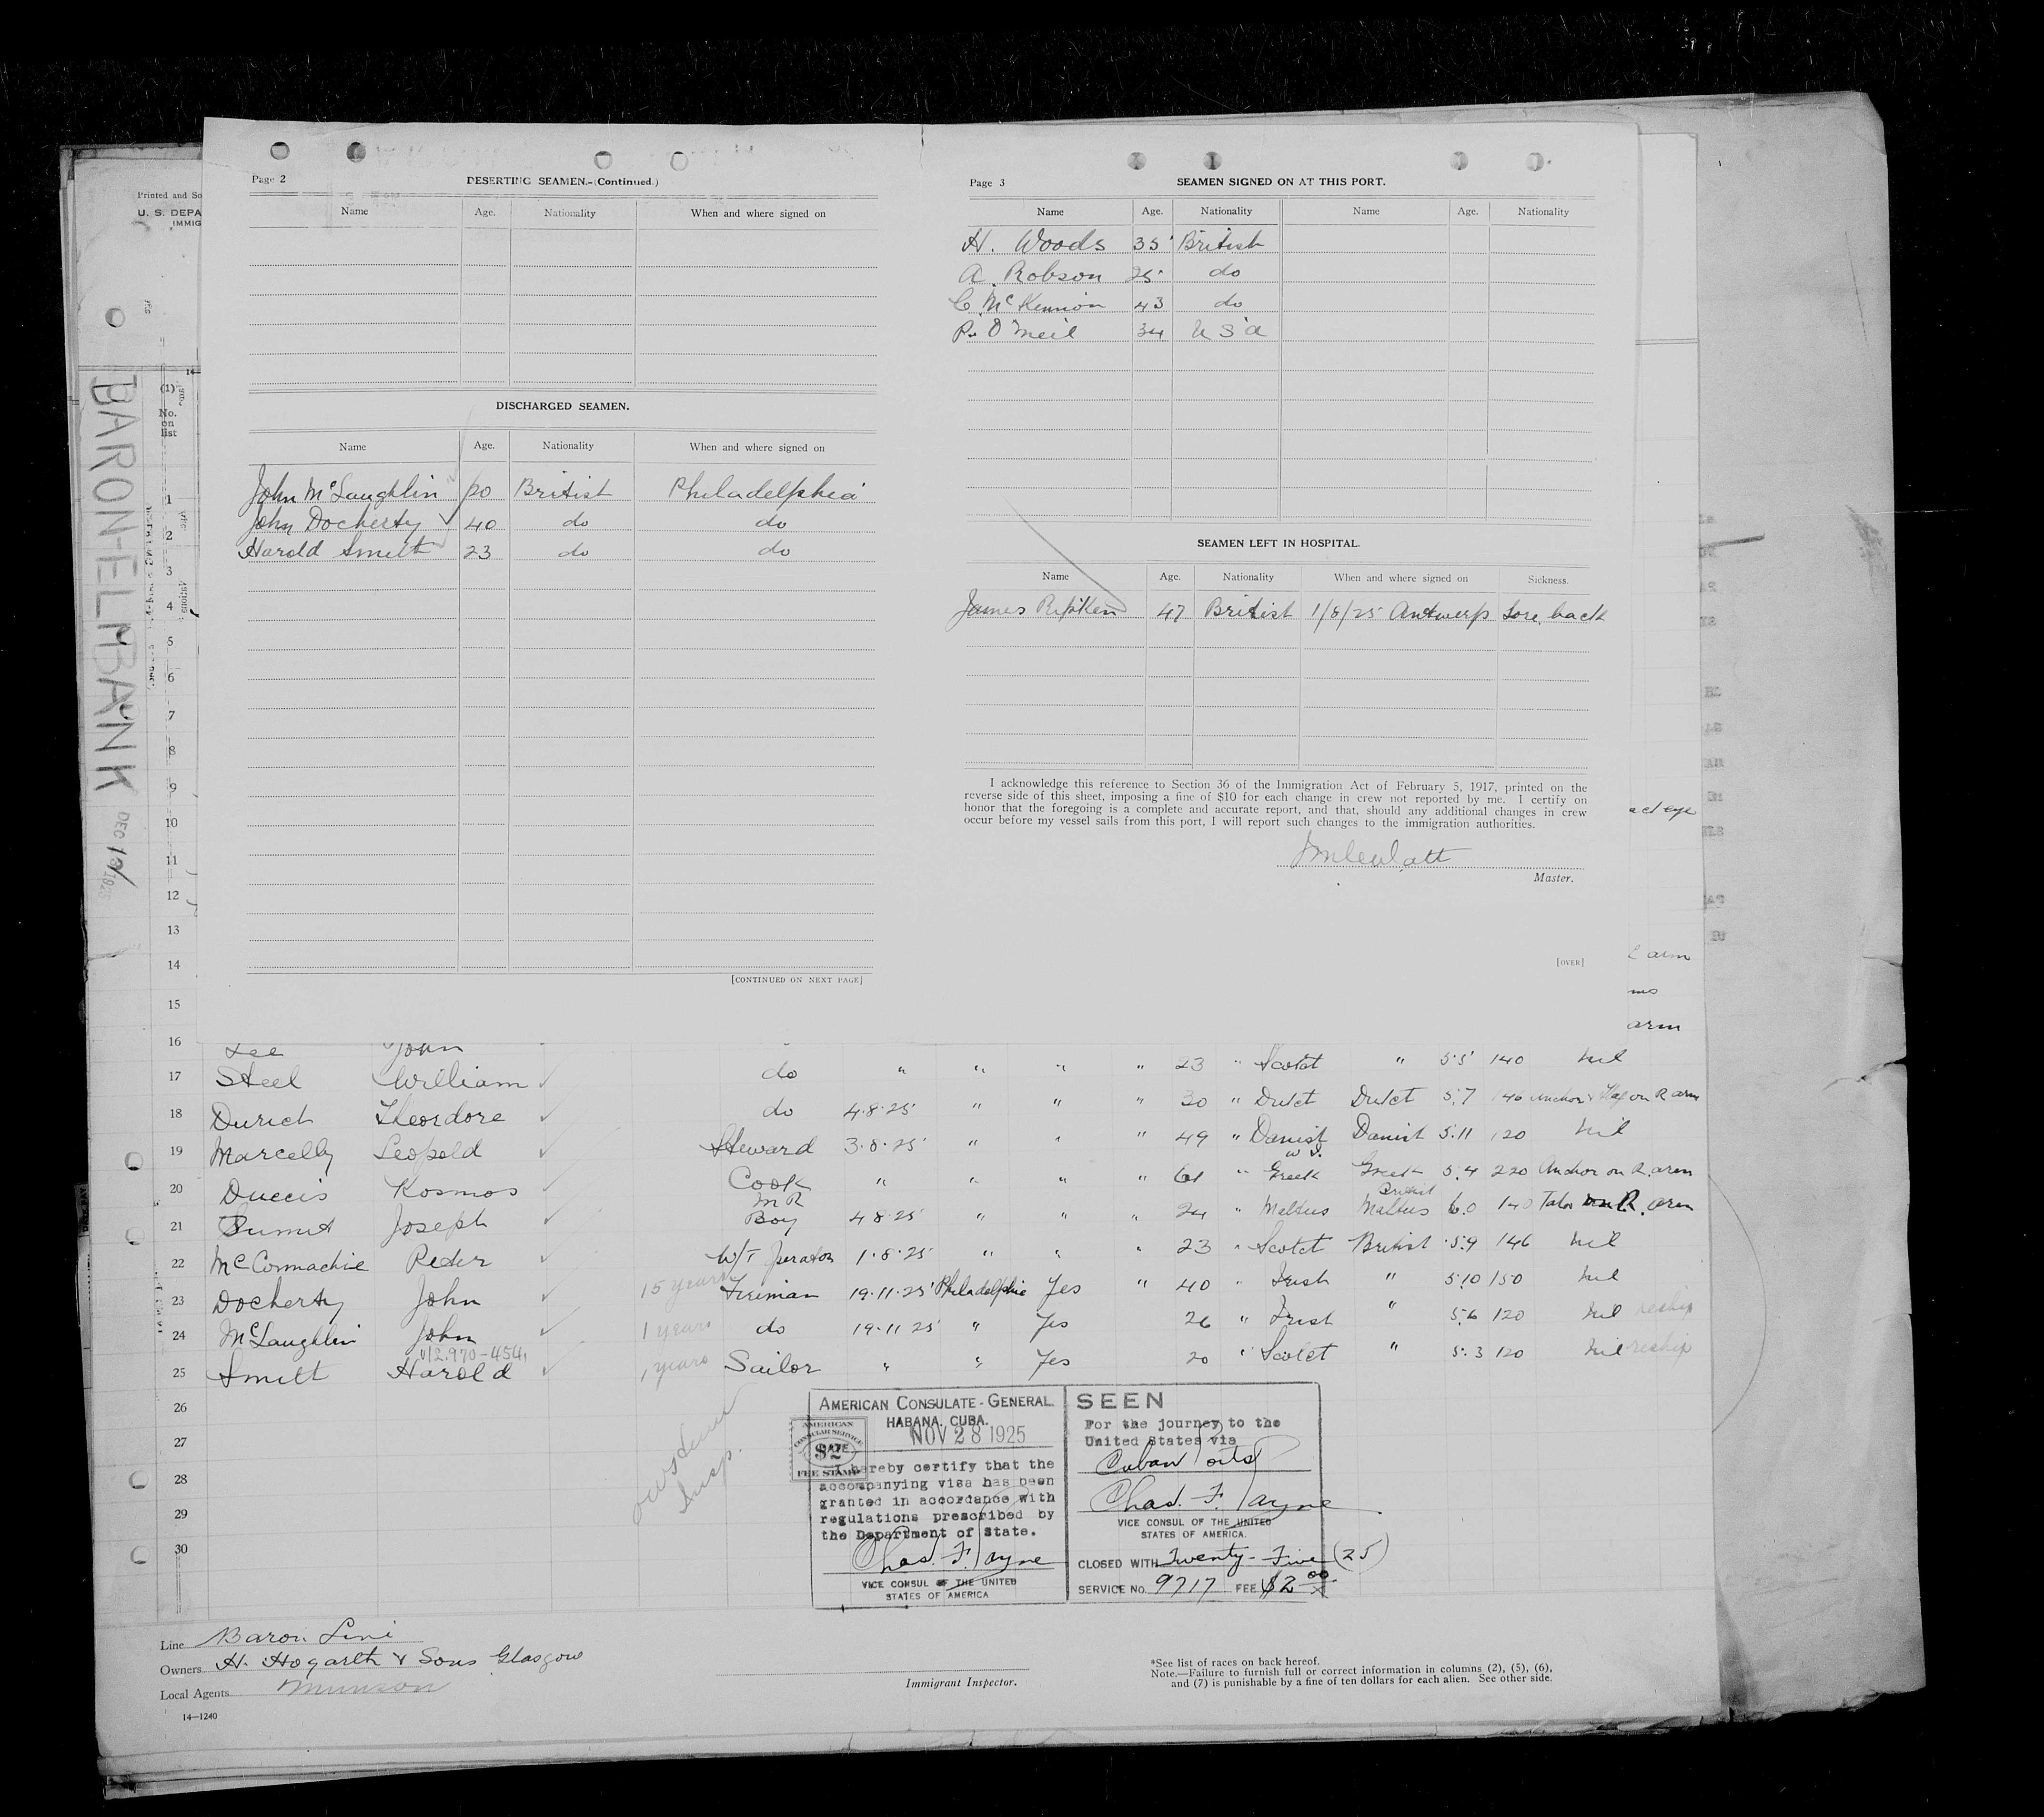 Page 2
DESERTING SEAMEN.-(Continued.)
Name Age. Nationality When and where signed on
DISCHARGED SEAMEN.
Name Age. Nationality When and where signed on
John McLaughlin 20 British Philadelphia
John Docherty 40 do do
Harold Smith 23 do do
[CONTINUED ON NEXT PAGE]
Page 3
SEAMEN SIGNED ON AT THIS PORT.
Name Age. Nationality Name Age. Nationality
H. Woods 35 British
A. Robson 25 do
C. McKennion 43 do
P. O'Neil 34 U S A
SEAMEN LEFT IN HOSPITAL.
Name Age. Nationality When and where signed on Sickness.
James Ripken 47 British 1/8/25 Antwerp Sore back
I acknowledge this reference to Section 36 of the Immigration Act of February 5, 1917, printed on the
reverse side of this sheet, imposing a fine of $10 for each change in crew not reported by me. I certify on
honor that the foregoing is a complete and accurate report, and that, should any additional changes in crew
occur before my vessel sails from this port, I will report such changes to the immigration authorities.
Master.
[OVER]
Printed and So
U. S. DEPA
IMMIG
BARON-ELMBANK
DEC 12/1925
(1)
No.
on
list
1
2
3
4
5
6
7
8
9
10
11
12
13
14
arm
15
16 Lee John
arm
17 Steel William do " " " " 23 " Scotch " 5.5 140 nil
18 Durich Theordore do 4.8.25 " " " 30 " Dutch Dutch 5.7 146 Anchor & Flag on R arm
19 Marcelly Leopold Steward 3.8.25 " " " 49 " Danish W I. Danish 5.11 120 nil
20 Duccis Kosmos Cook " " " " 61 " Greek Greek 5.4 220 Anchor on R. arm
21 Bumit Joseph M R Boy 4.8.25 " " " 24 " Maltees British Maltees 6.0 140 R. arm
22 McCormachie Peter W/T Operator 1.8.25 " " " 23 " Scotch British 5.9 146 nil
23 Docherty John 15 years Fireman 19.11.25 Philadelphia Yes " 40 " Irish " 5.10 150 nil
24 McLaughlin John 1 years do 19.11.25 " Yes 26 " Irish " 5.6 120 nil reship
25 Smith Harold 1 years Sailor " " Yes 20 " Scotch " 5.3 120 nil reship
26
27
28
29
30
AMERICAN CONSULATE-GENERAL
HABANA, CUBA.
NOV 28 1925
AMERICAN
CONSULAR SERVICE
$2
FEE STAMP
I hereby certify that the
accompanying visa has been
granted in accordance with
regulations prescribed by
the Department of State.
Chas. F. Payne
VICE CONSUL OF THE UNITED
STATES OF AMERICA
SEEN
For the journey to the
United States via
Cuban Ports
Chas. F. Payne
VICE CONSUL OF THE UNITED
STATES OF AMERICA.
CLOSED WITH Twenty-Five (25)
SERVICE NO. 9717 FEE $2.00
Line Baron Line
Owners H. Hogarth & Sons Glasgow
Local Agents Munson
14—1240
Immigrant Inspector.
*See list of races on back hereof.
Note.—Failure to furnish full or correct information in columns (2), (5), (6),
and (7) is punishable by a fine of ten dollars for each alien. See other side.